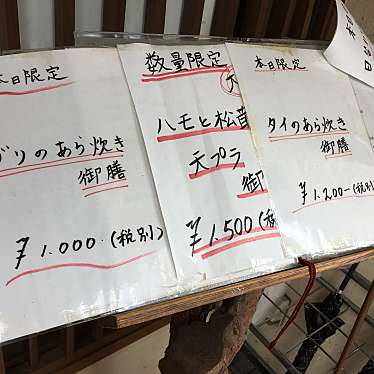 本日限定
ブリのあら炊き
御膳
¥1.000-(税別)
数量限定
ハモと松茸
天プラ
御
¥1.500(税
本日限定
タイのあら炊き
御膳
¥1.200-(税別)